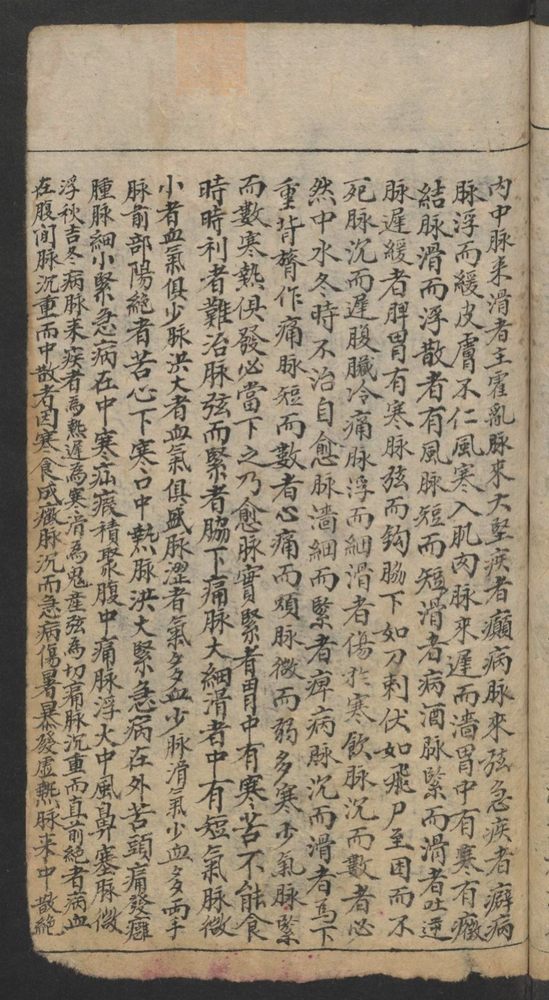 內中脉来滑者主霍乱脉来大坚疾者癲病脉來弦急疾者癖病
脉浮而緩皮膚不仁風寒入肌肉脉來遲而濇胃中有寒有癥
結脉滑而浮散者有風脉短而短滑者病酒脉緊而滑者吐逆
脉遲緩者脾胃有寒脉弦而鈎脇下如刀刺伏如飛尸至困而不
死脉沉而遲腹臟冷痛脉浮而細滑者傷於寒飲脉沉而數者必
然中水冬時不治自愈脉濇細而緊者痺病脉沉而滑者為下
重背膂作痛脉短而數者心痛而煩脉微而弱多寒少氣脉緊
而數寒熱俱發必當下之乃愈脉實緊者胃中有寒苦不能食
時時利者難治脉弦而緊者脇下痛脉大細滑者中有短氣脉微
小者血氣俱少脉洪大者血氣俱盛脉澀者氣多血少脉滑氣少血多兩手
脉前部陽絕者苦心下寒口中熱脉洪大緊急病在外苦頭痛發癰
腫脉細小緊急病在中寒疝瘕積聚腹中痛脉浮大中風鼻塞脉微
浮秋吉冬病脉来疾者為熱遲為寒滑為鬼産弦為切痛脉沉重而直前絕者病血
在腹間脉沉重而中散者因寒食成癥脉沉而急病傷暑暴發虛熱脉来中散絕